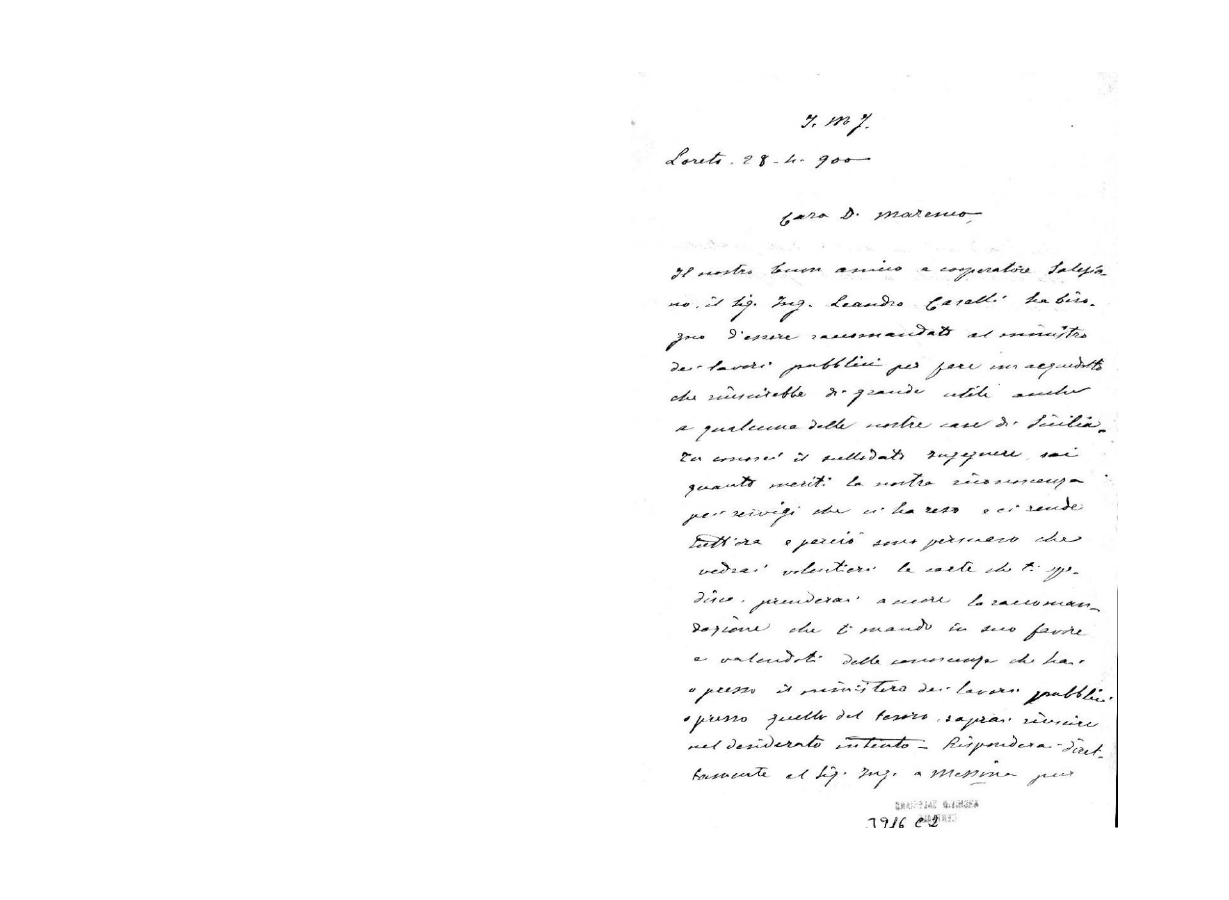 J. M J.
Loreto. 28-4-900
Caro D. Marenco,
Il nostro buon amico e cooperatore Salesia
no, il Sig. Ing. Leandro Caselli ha biso-
gno d'essere raccomandato al ministro
dei lavori pubblici per fare un acquedotto
che riuscirebbe di grande utile anche
a qualcuna delle nostre case di Sicilia.
Tu conosci il sullodato Ingegnere, sai
quanto meriti la nostra riconoscenza
pei servigi che ci ha reso e ci rende
tutt'ora e perciò sono persuaso che
vedrai volentieri le carte che ti spe-
disco, prenderai a cuore la raccoman-
dazione che ti mando in suo favore
e valendoti delle conoscenze che hai
o presso il ministero dei lavori pubblici
o presso quello del tesoro, saprai riuscire
nel desiderato intento - Risponderai diret-
tamente al Sig. Ing. a Messina per
ARCHIVIO SALESIANO
CENTRALE
3916 C2